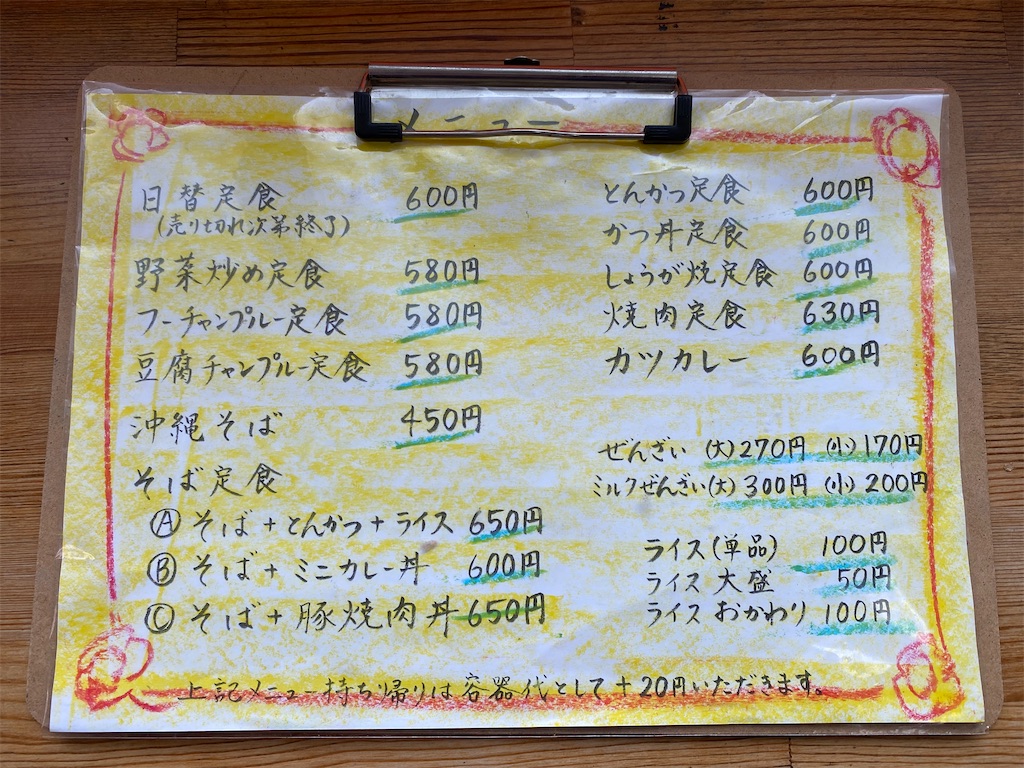 メニュー
日替定食 600円
(売り切れ次第終了)
野菜炒め定食 580円
フーチャンプルー定食 580円
豆腐チャンプルー定食 580円
沖縄そば 450円
そば定食
Ⓐ そば+とんかつ+ライス 650円
Ⓑ そば+ミニカレー丼 600円
Ⓒ そば+豚焼肉丼 650円
とんかつ定食 600円
かつ丼定食 600円
しょうが焼定食 600円
焼肉定食 630円
カツカレー 600円
ぜんざい (大)270円 (小)170円
ミルクぜんざい(大)300円 (小)200円
ライス(単品) 100円
ライス大盛 50円
ライスおかわり 100円
上記メニュー持ち帰りは容器代として+20円いただきます。